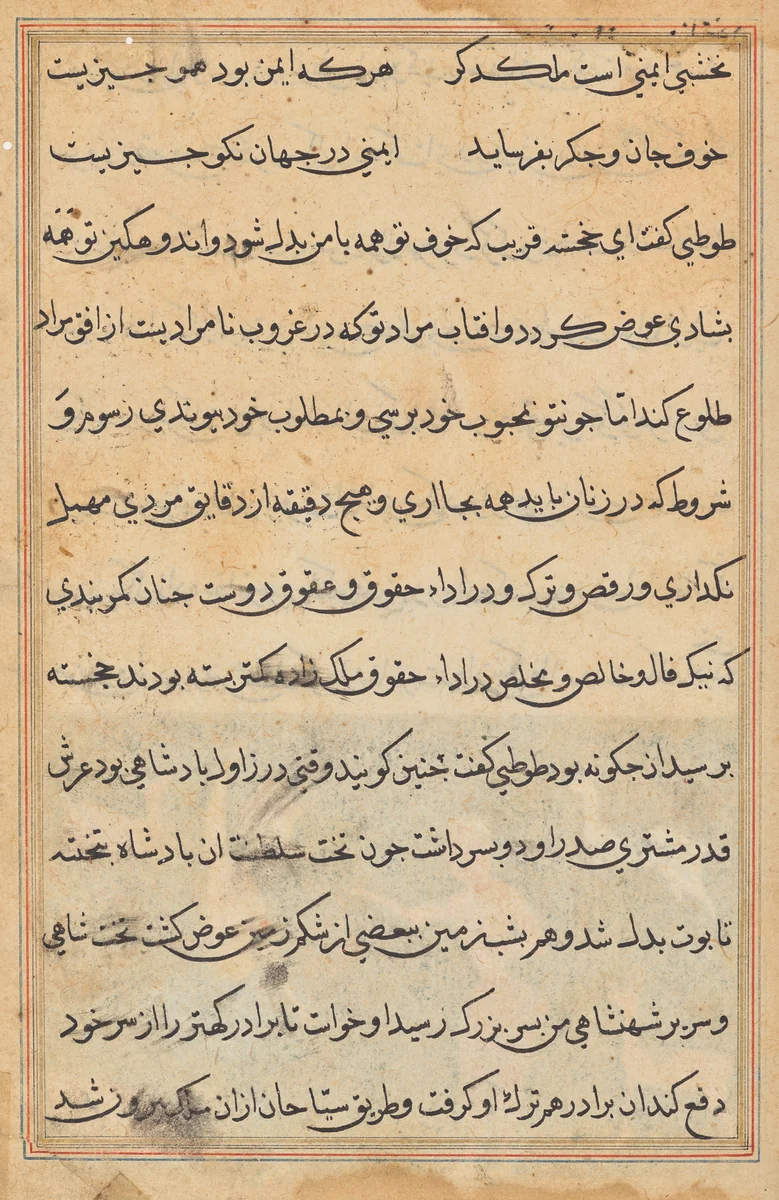 نخشبي ايمني است ملك دكر هركه ايمن بود همو جسيزيست
خوف جان و جكر بفرسايد ايمني درجهان نكو جسيزيست
طوطي كفت اي خجسته قريب كه خوف تو همه بامن بدل شود و اندوهكين تو همه
بشادي عوض كردد و افتاب مراد تو كه در غروب نامراديست از افق مراد
طلوع كند امّا جون تو بمحبوب خود برسي و بمطلوب خود بيوندي رسوم وَ
شروط كه در زنان بايد همه بجا اري و هيج دقيقه از دقايق مردي مهمل
نكداري و رقص و ترك و در اداء حقوق و عقوق دوست جنان كمر بندي
كه نيك فال و خالص و مخلص در اداء حقوق ملك زاده كمر بسته بودند خجسته
برسيد ان جكونه بود طوطي كفت جنين كويند وقتي در زاول بادشاهي بود عرش
قدر مشتري صدر او دو بسر داشت جون تخت سلطنت ان بادشاه بتخته
تابوت بدل شد و همر بشت زمين ببعضي از شكم زمين عوض كشت تخت شاهي
و سرير شهنشاهي من بسر بزرك رسيد او خواست تا برادر كهتر را از سر خود
دفع كند ان برادر هم ترك او كرفت و طريق سيّاحان ازان ملك برون شد